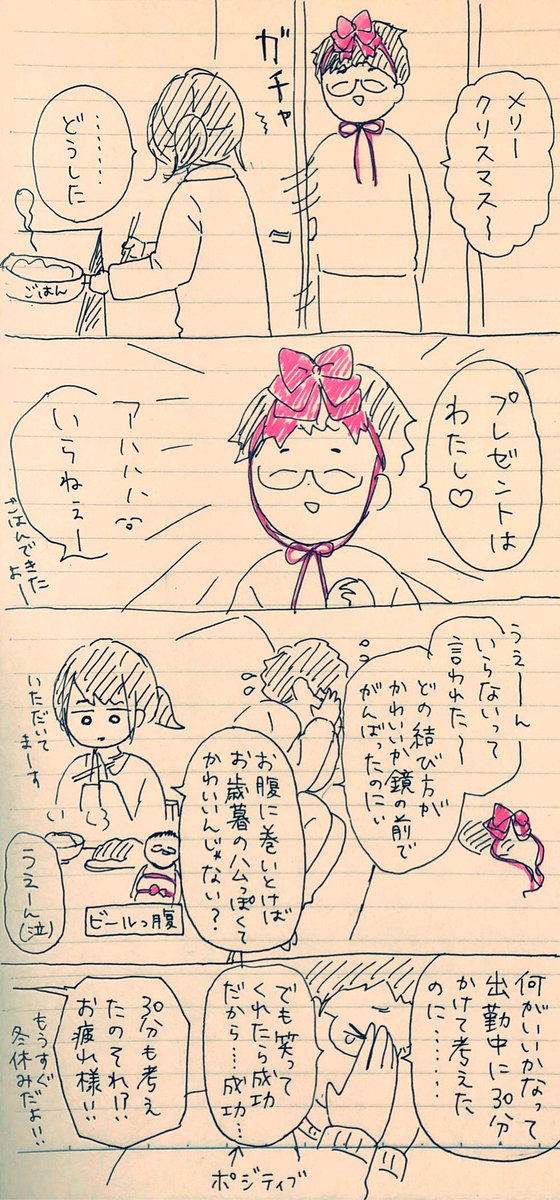 メリー
クリスマス〜
ガチャ
………
どうした
ごはん
プレゼントは
わたし♡
アハハハ
いらねぇー
ごはんできた
よー
うえーん
いらないって
言われた〜
どの結び方が
かわいいか鏡の前で
がんばったのにぃ
お腹に巻いとけば
お歳暮のハムっぽくて
かわいいんじゃない？
いただいて
まーす
ビールっ腹
うえーん
(泣)
何がいいかなって
出勤中に30分
かけて考えた
のに……
でも笑って
くれたら成功
だから…成功…
ポジティブ
30分も考え
たのそれ!?
お疲れ様!!
もうすぐ
冬休みだよ!!